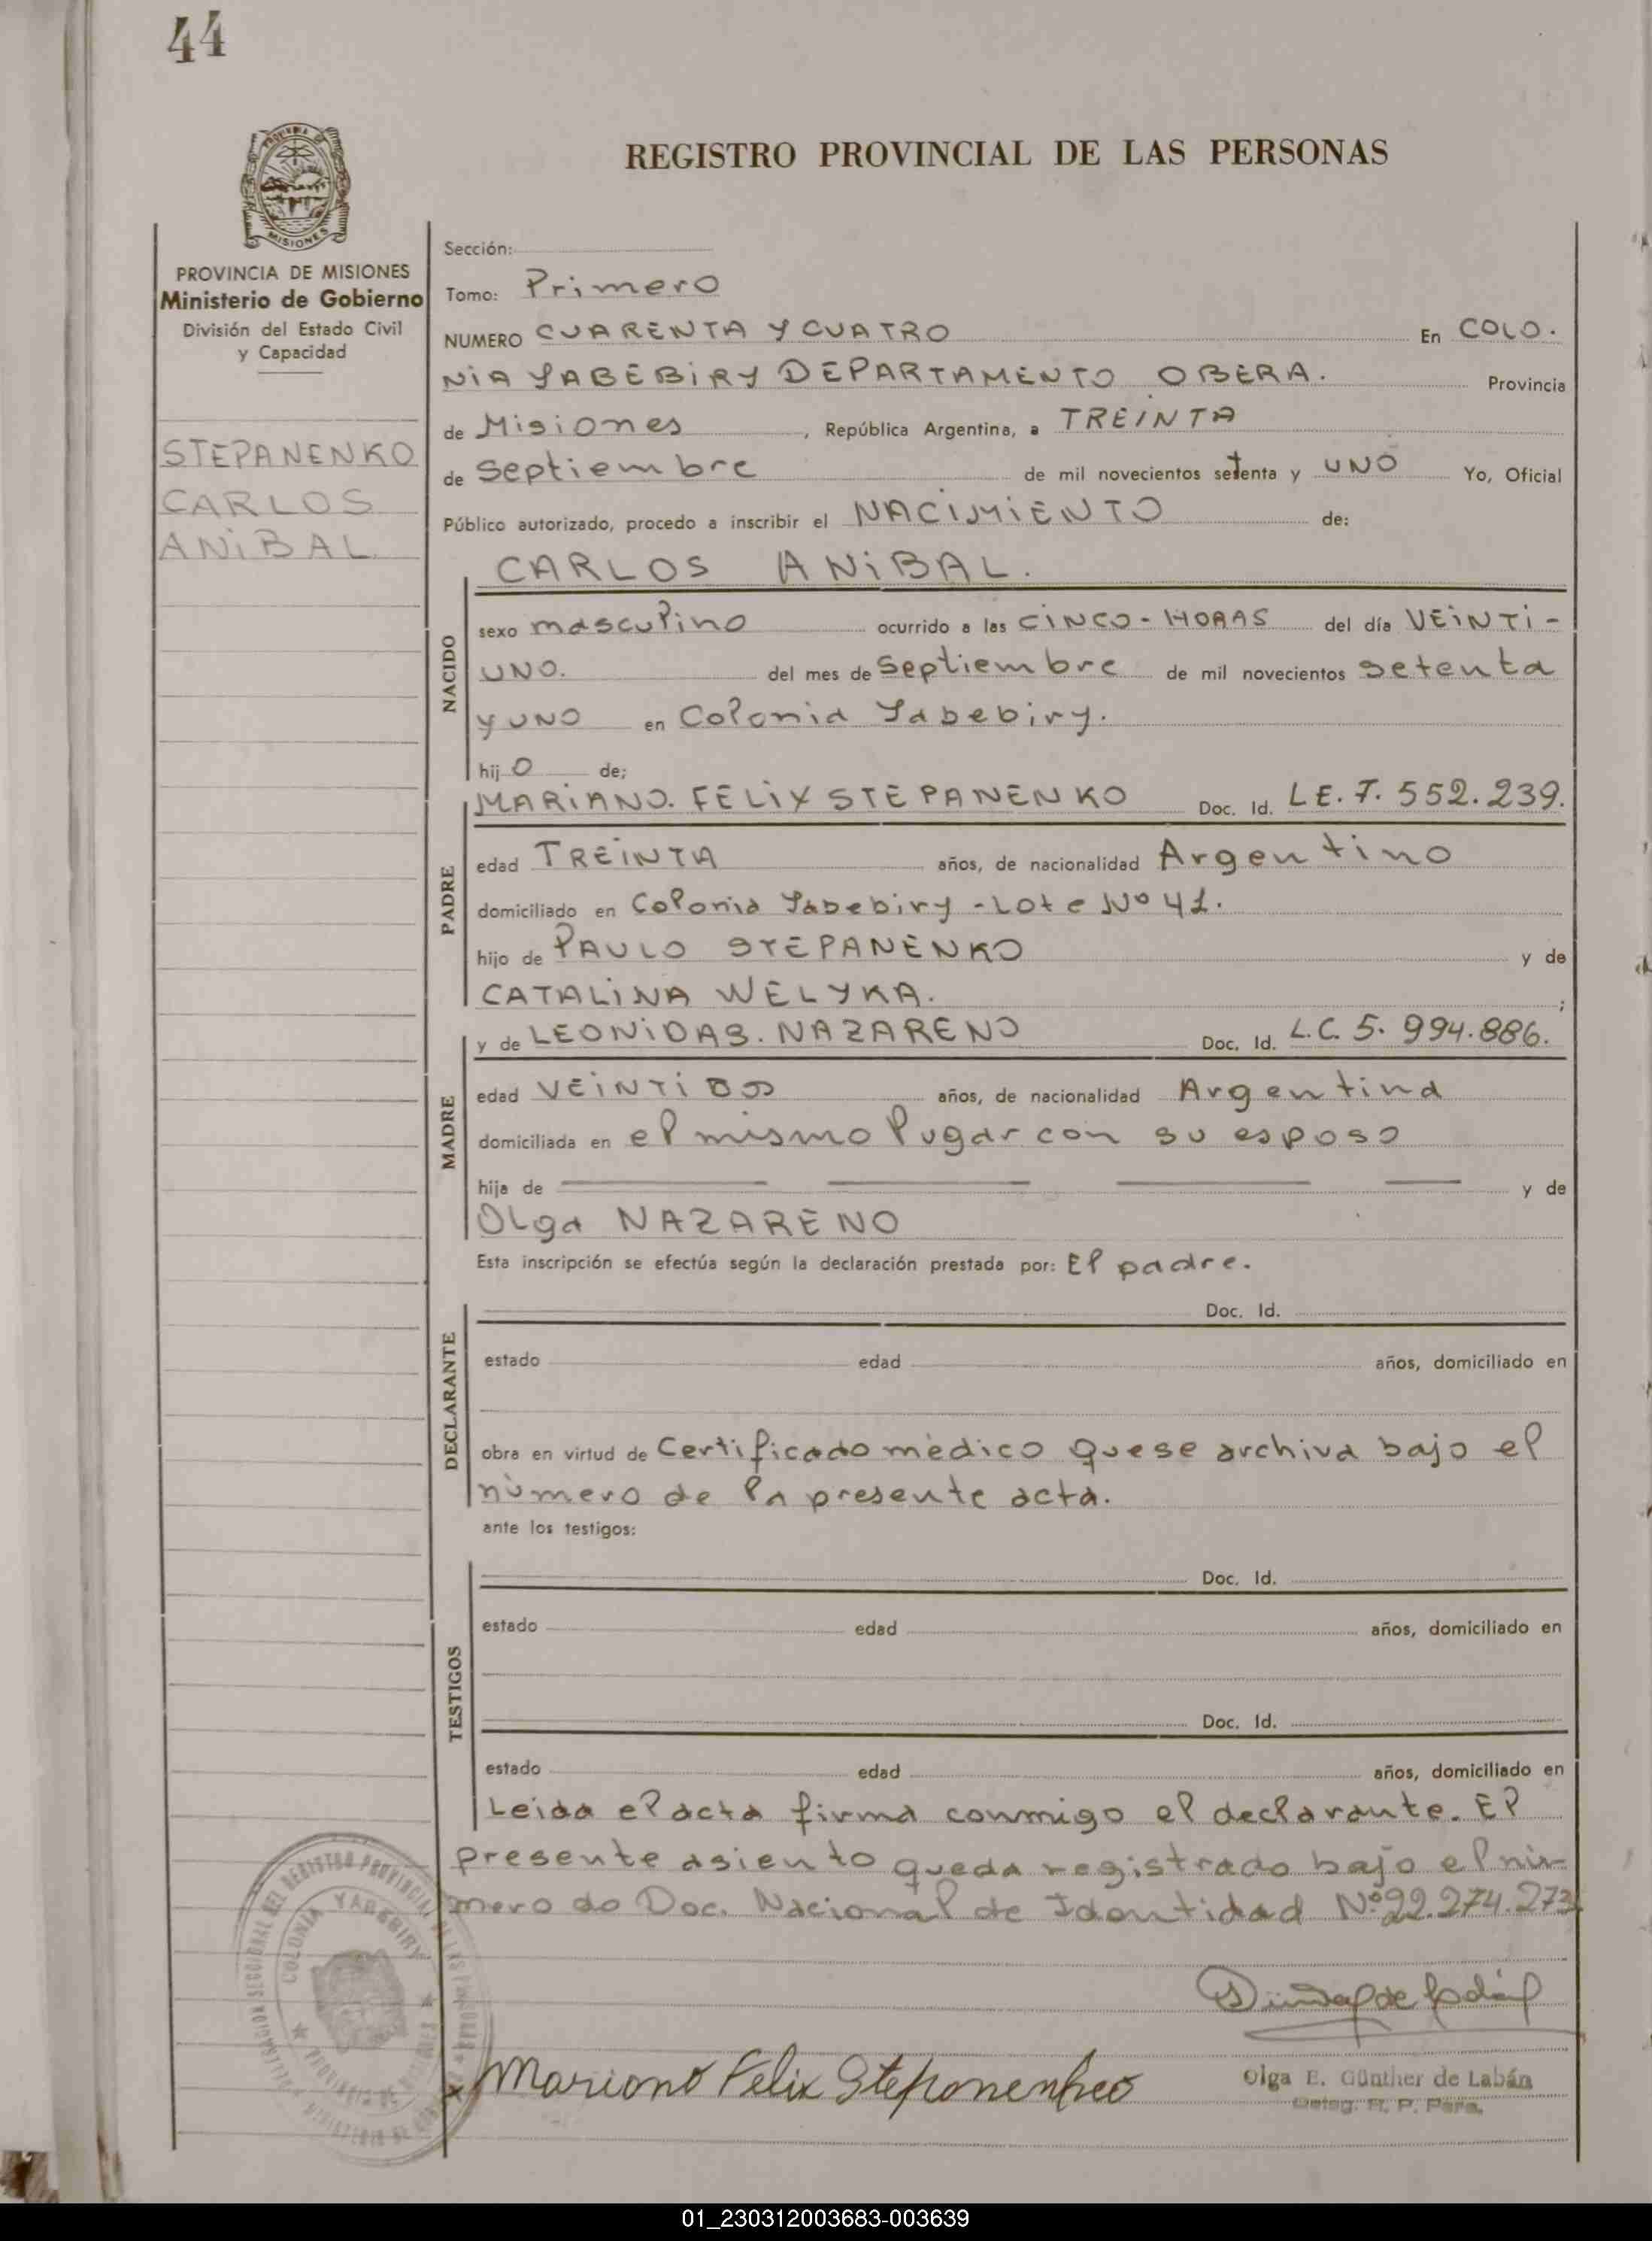 44
MISIONES
REGISTRO PROVINCIAL DE LAS PERSONAS
PROVINCIA DE MISIONES
Ministerio de Gobierno
División del Estado Civil
y Capacidad
STEPANENKO
CARLOS
ANiBAL
Sección:
Tomo: Primero
NUMERO CUARENTA Y CUATRO En COLO.
NiA YABEBiRY DEPARTAMENTO OBERA. Provincia
de Misiones, República Argentina, a TREINTA
de septiembre de mil novecientos setenta y UNO Yo, Oficial
Público autorizado, procedo a inscribir el NACiMiENTO de:
CARLOS ANiBAL.
NACIDO
sexo masculino ocurrido a las CiNCO-HORAS del día VEiNTi-
UNO. del mes de septiembre de mil novecientos setenta
y UNO en Colonia Yabebiry.
hijo de;
MARiANO. FELiX STEPANENKO Doc. Id. LE. 7. 552. 239.
PADRE
edad TREiNTA años, de nacionalidad Argentino
domiciliado en Colonia Yabebiry - Lote Nº 41.
hijo de PAULO STEPANENKO y de
CATALiNA WELYKA. ;
y de LEONiDAS. NAZARENO Doc. Id. L.C. 5. 994.886.
MADRE
edad VEiNTi DOS años, de nacionalidad Argentina
domiciliada en el mismo lugar con su esposo
hija de ——— ——— ——— — y de
Olga NAZARENO
Esta inscripción se efectúa según la declaración prestada por: El padre.
DECLARANTE
Doc. Id.
estado edad años, domiciliado en
obra en virtud de Certificado mèdico que se archiva bajo el
nùmero de la presente acta.
ante los testigos:
TESTIGOS
Doc. Id.
estado edad años, domiciliado en
Doc. Id.
estado edad años, domiciliado en
Leida el acta firma conmigo el declarante. El
presente asiento queda registrado bajo el nù-
mero do Doc. Nacional de Identidad Nº 22.274.273
COLONIA YABEBIRY
Mariano Felix Stepanenko
Olga E. Günther de Labán
Deleg. R. P. Pers.
01_230312003683-003639